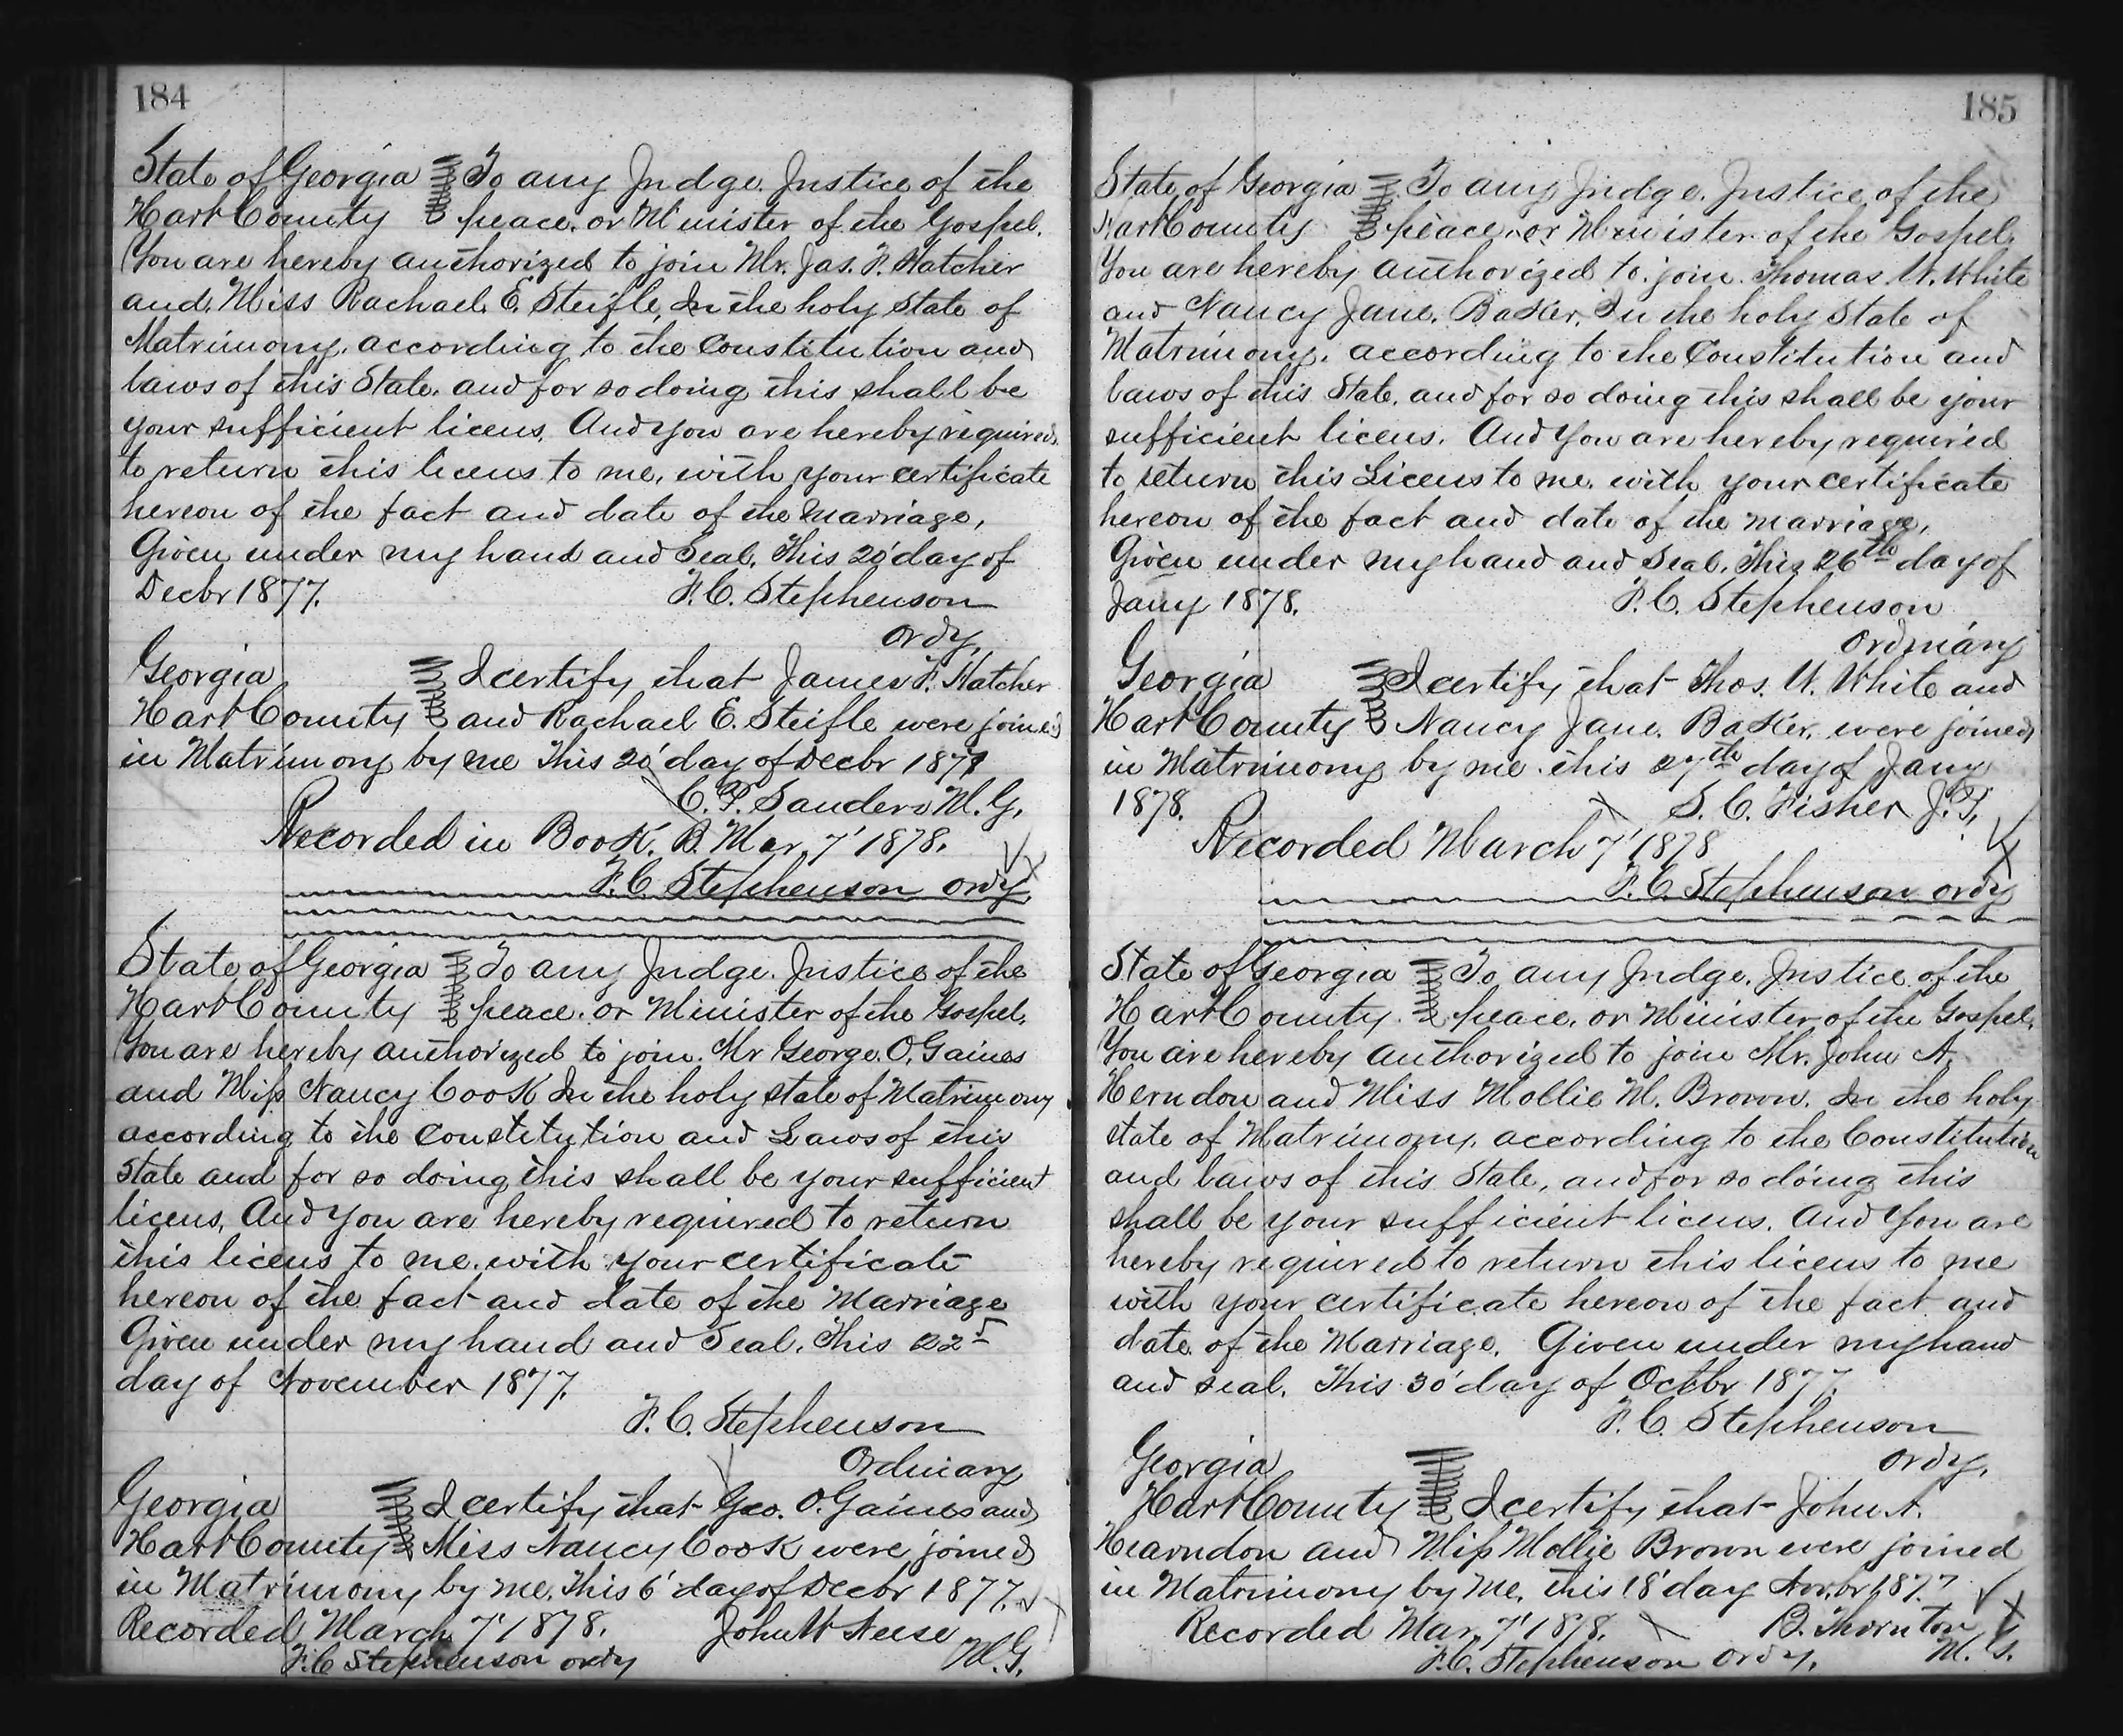 184
State of Georgia To any Judge. Justice of the
Hart County peace. or Minister of the Gospel.
You are hereby authorized to join Mr. Jas. F. Hatcher
and, Miss Rachael E. Steifle, In the holy State of
Matrimony. according to the Constitution and
laws of this State. and for so doing this shall be
your sufficient licens, And You are hereby required,
to return this licens to me, with your certificate
hereon of the fact and date of the Marriage,
Given under my hand and Seal. This 20' day of
Decbr 1877. F. C. Stephenson
ordy,
Georgia I certify that James F. Hatcher
Hart County and Rachael E. Steifle were joined
in Matrimony by me This 20' day of Decbr 1877
C. P. Sanders M. G.
Recorded in Book. B. Mar. 7' 1878.
F. C. Stephenson ordy
State of Georgia To any Judge. Justice of the
Hart County peace. or Minister of the Gospel,
You are hereby authorized to join. Mr George. O. Gaines
and Miss Nancy Cook In the holy state of Matrimony
according to the Constitution and Laws of this
State and for so doing this shall be your sufficient
licens, And You are hereby required to return
this licens to me. with your certificate
hereon of the fact and date of the Marriage
Given under my hand and Seal. This 22
day of November 1877.
F. C. Stephenson
Ordinary
Georgia I certify that Geo. O. Gaines and
Hart County Miss Nancy Cook were joined
in Matrimony by me. This 6' day of Decbr 1877.
Recorded March 7' 1878. John W Neese
F. C Stephenson ordy M. G.
185
State of Georgia To any Judge. Justice of the
Hart County peace. or Minister of the Gospel.
You are hereby authorized to join Thomas W. White
and Nancy Jane. Baker. In the holy State of
Matrimony. according to the Constitution and
laws of this State. and for so doing this shall be your
sufficient licens. And You are hereby required
to return this Licens to me. with your certificate
hereon of the fact and date of the marriage.
Given under my hand and Seal. This 26th day of
Jany 1878. F. C. Stephenson
Ordinary
Georgia I certify that Thos. W. White and
Hart County Nancy Jane. Baker. were joined
in Matrimony by me this 27th day of Jany
1878. S. C. Fisher J. P.
Recorded March 7' 1878
F. C. Stephenson ordy
State of Georgia To any Judge. Justice of the
Hart County. peace. or Minister of the Gospel.
You are hereby authorized to join Mr. John A.
Herndon and Miss Mollie M. Brown. In the holy
state of Matrimony. according to the Constitution
and laws of this State, and for so doing this
shall be your sufficient licens. And You are
hereby required to return this licens to me
with your certificate hereon of the fact and
date of the Marriage. Given under my hand
and seal. This 30' day of Octbr 1877.
F. C. Stephenson
ordy.
Georgia
Hart County I certify that John A.
Hearndon and Miss Mollie Brown were joined
in Matrimony by Me. this 18' day Novbr 1877
Recorded Mar. 7' 1878. B. Thornton
F. C. Stephenson Ordy. M. G.